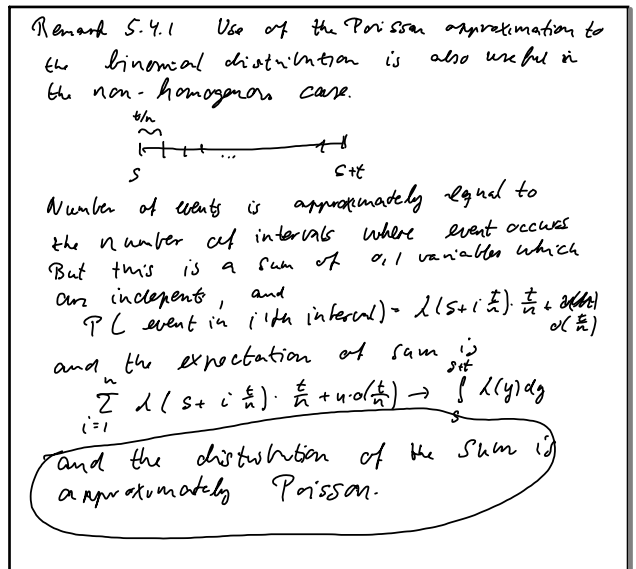 Remark 5.4.1 Use of the Poisson approximation to
the binomial distribution is also useful in
the non-homogenous case.
t/n
...
s s+t
Number of events is approximately equal to
the number of intervals where event occurs
But this is a sum of 0,1 variables which
are indepents, and
P( event in i'th interval) = λ(s+i t/n)· t/n + o(t/n)
and the expectation of sum is
∑_{i=1}^{n} λ( s+ i t/n)· t/n + n·o(t/n) → ∫_{s}^{s+t} λ(y)dy
and the distribution of the sum is
approximately Poisson.